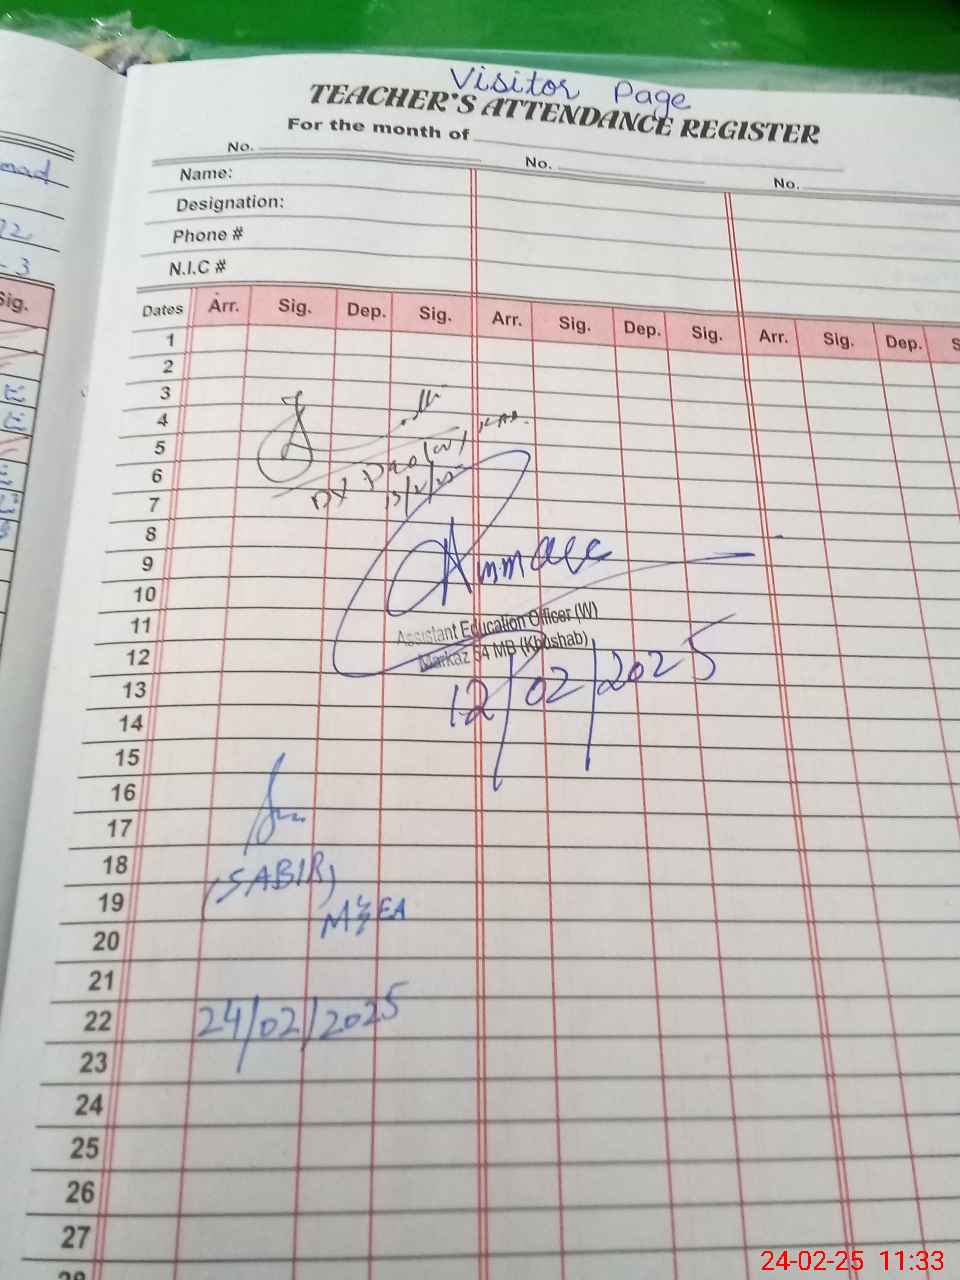 Visitor Page
TEACHER'S ATTENDANCE REGISTER
For the month of
No. No. No.
Name:
Designation:
Phone #
N.I.C #
Sig.
Dates Arr. Sig. Dep. Sig. Arr. Sig. Dep. Sig. Arr. Sig. Dep. S
1
2
3
4
5
6
7
8
9
10
11
12
13
14
15
16
17
18
19
20
21
22
23
24
25
26
27
28
Assistant Education Officer (W)
Markaz 64 MB (Khushab)
12/02/2025
(SABIR)
MEA
24/02/2025
24-02-25 11:33